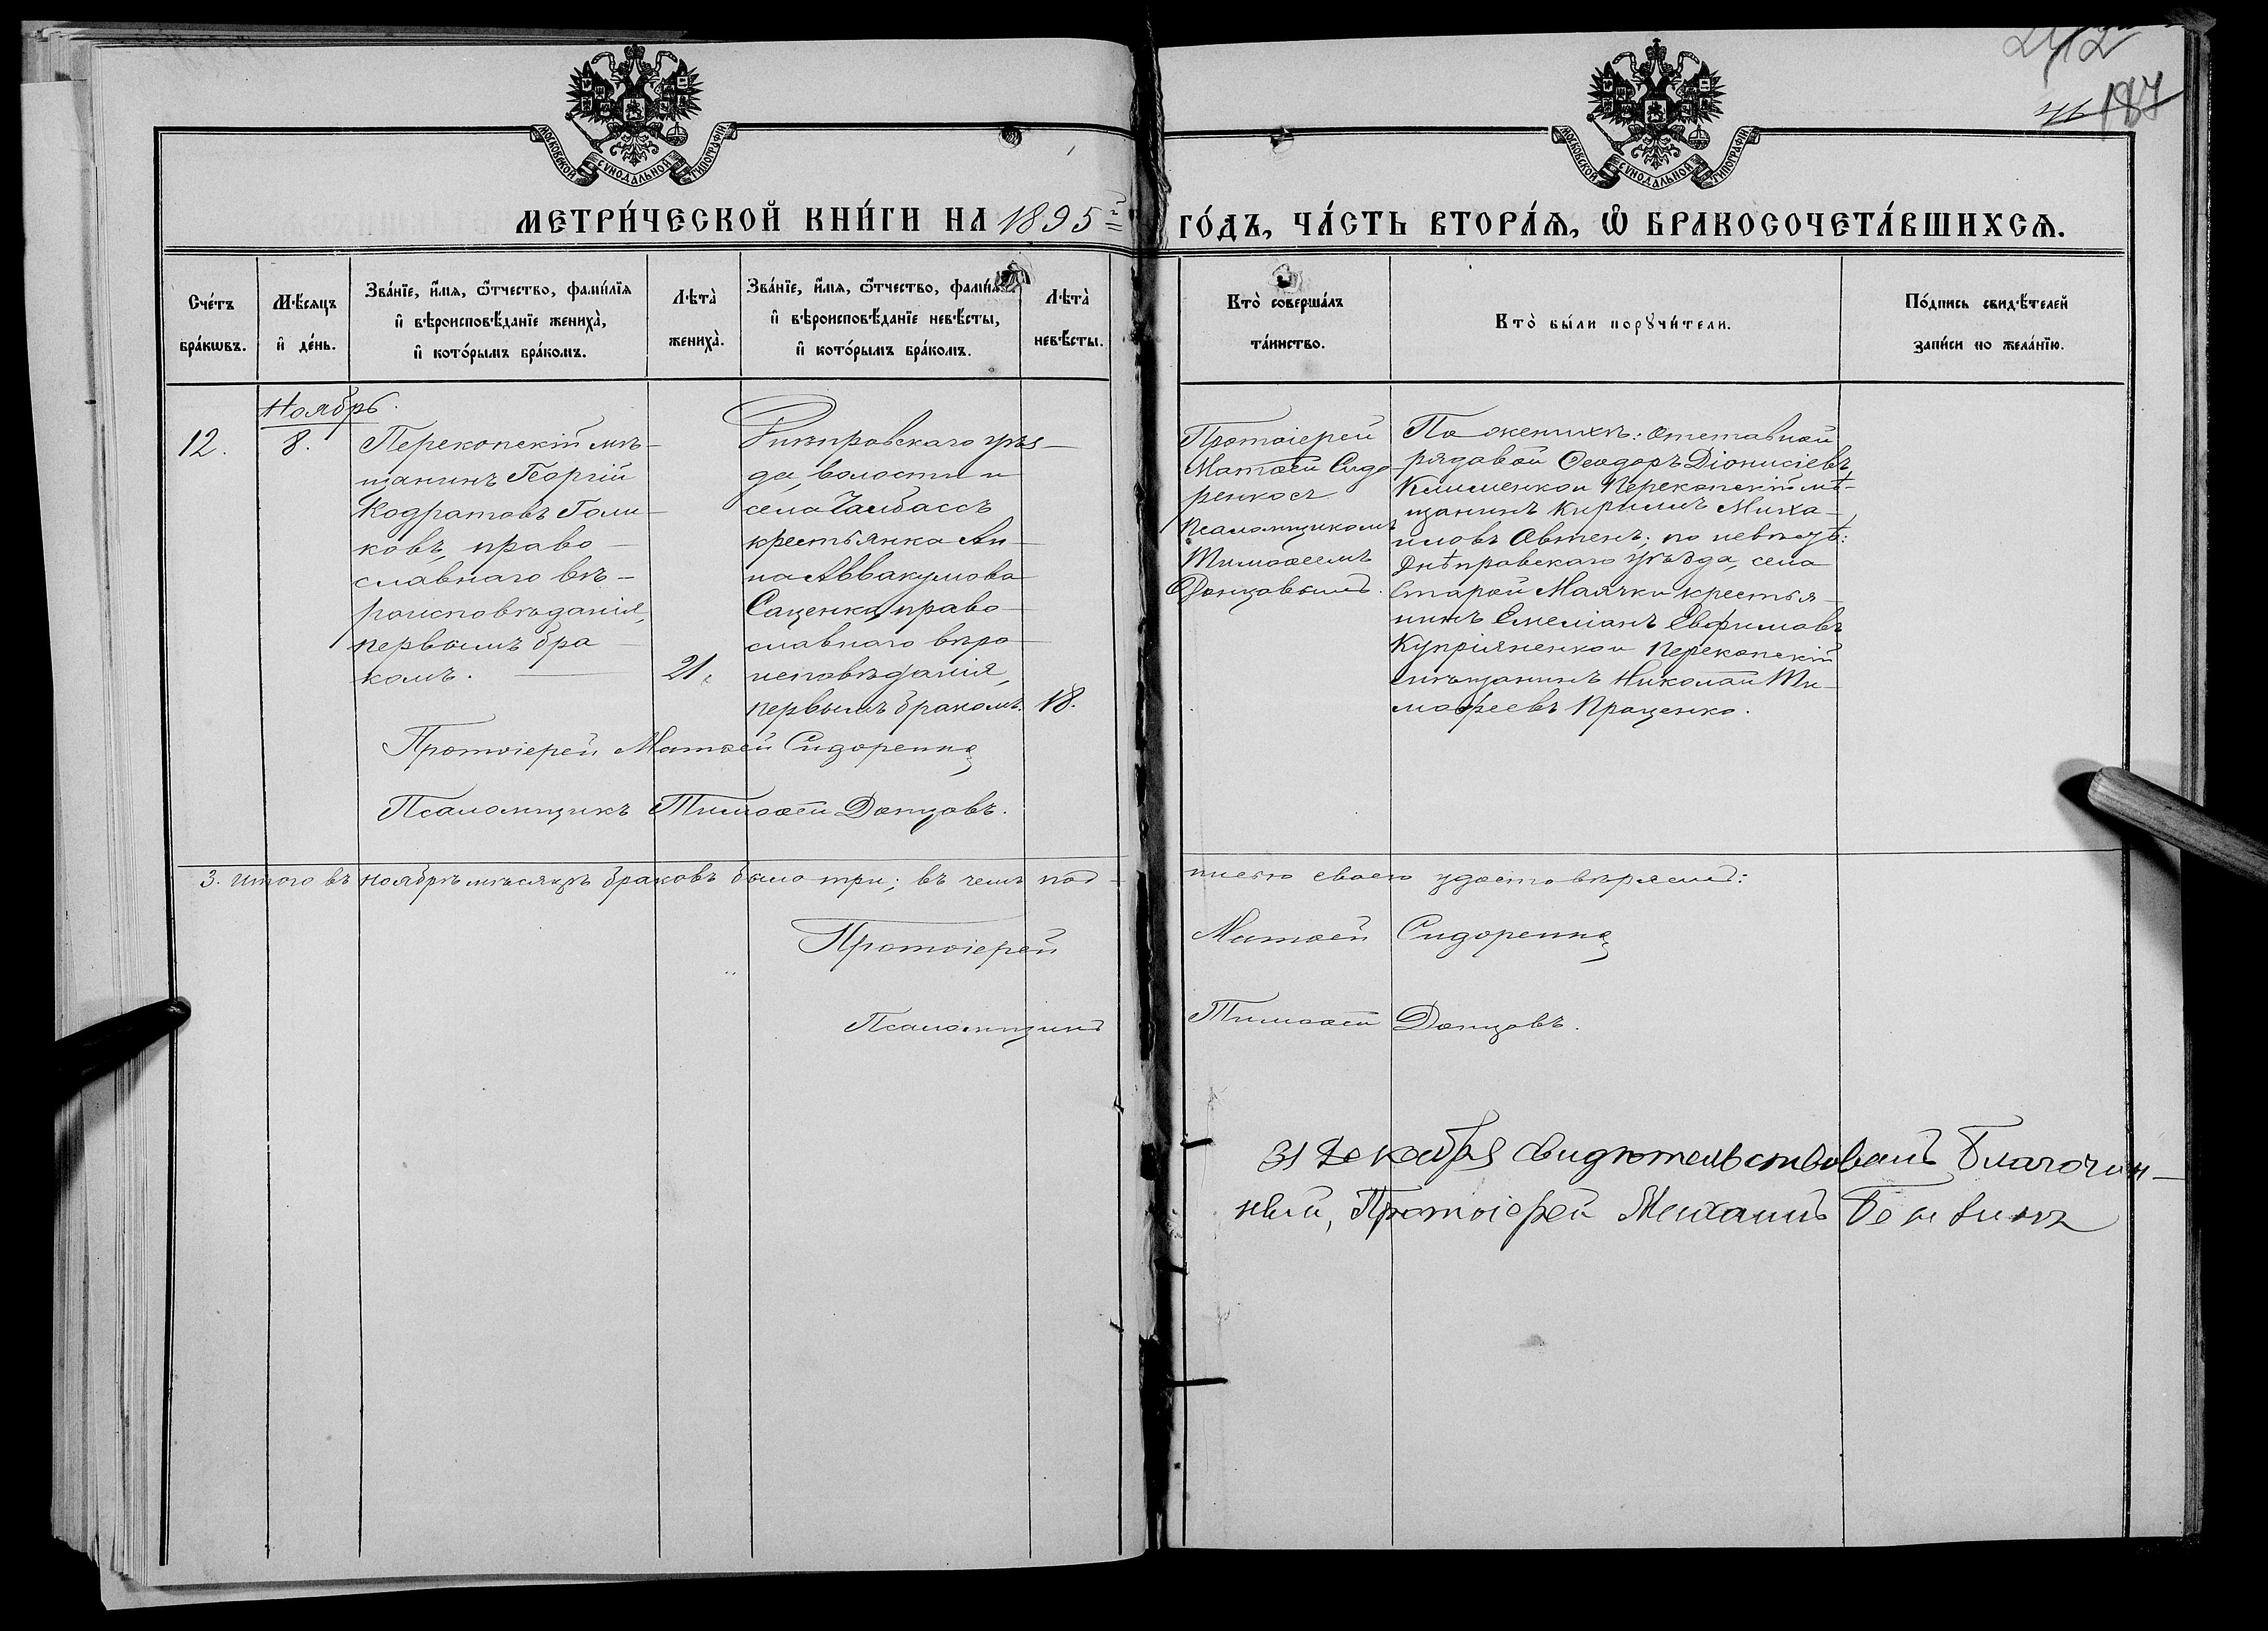 242
187
МОСКОВСКОЙ СѴНОДАЛЬНОЙ ТИПОГРАФІИ
МОСКОВСКОЙ СѴНОДАЛЬНОЙ ТИПОГРАФІИ
МЕТРИ́ЧЕСКОЙ КНИ́ГИ НА 1895й ГО́ДЪ, ЧА́СТЬ ВТОРА́Ѧ, Ѡ҆ БРАКОСОЧЕТА́ВШИХСѦ.
Сче́тъ
бра́кѡвъ.
Мѣ́сяцъ
и҆ де́нь.
Зва́нїе, и҆́мѧ, ѻ҆́тчество, фами́лїѧ
и҆ вѣроисповѣ́данїе жениха̀,
и҆ кото́рымъ бра́комъ.
Лѣ́та̀
жениха̀.
Зва́нїе, и҆́мѧ, ѻ҆́тчество, фами́лїѧ
и҆ вѣроисповѣ́данїе невѣ́сты,
и҆ кото́рымъ бра́комъ.
Лѣ́та̀
невѣ́сты.
Кто̀ соверша́лъ
та́инство.
Кто̀ бы́ли порꙋчи́тели.
По́дпись свидѣ́телей
за́писи по жела́нїю.
12.
Ноябрь.
8.
Перекопскій мѣ-
щанинъ Георгій
Кодратовъ Голи-
ковъ, право-
славнаго вѣ-
роисповѣданія,
первымъ бра-
комъ.
21.
Днѣпровскаго уѣз-
да, волости и
села Чалбассъ
крестьянка Ан-
на Аввакумова
Саценко, право-
славнаго вѣро-
исповѣданія,
первымъ бракомъ.
18.
Протоіерей
Матѳей Сидо-
ренко съ
псаломщикомъ
Тимоѳеемъ
Донцовымъ.
По женихѣ: отставной
рядовой Ѳеодоръ Діонисіевъ
Клименко и Перекопскій мѣ-
щанинъ Кириллъ Миха-
иловъ Автенъ; по невѣстѣ:
Днѣпровскаго уѣзда, села
Старой Маячки крестья-
нинъ Емеліанъ Евфимовъ
Купріяненко и Перекопскій
мѣщанинъ Николай Ти-
мофеевъ Проценко.
Протоіерей Матѳей Сидоренко
Псаломщикъ Тимоѳей Донцовъ.
3. Итого въ ноябрѣ мѣсяцѣ браковъ было три; въ чемъ под-
писью своею удостовѣряемъ:
Протоіерей Матѳей Сидоренко
Псаломщикъ Тимоѳей Донцовъ.
31 Декабря свидѣтельствовалъ Благочин-
ный, Протоіерей Михаилъ